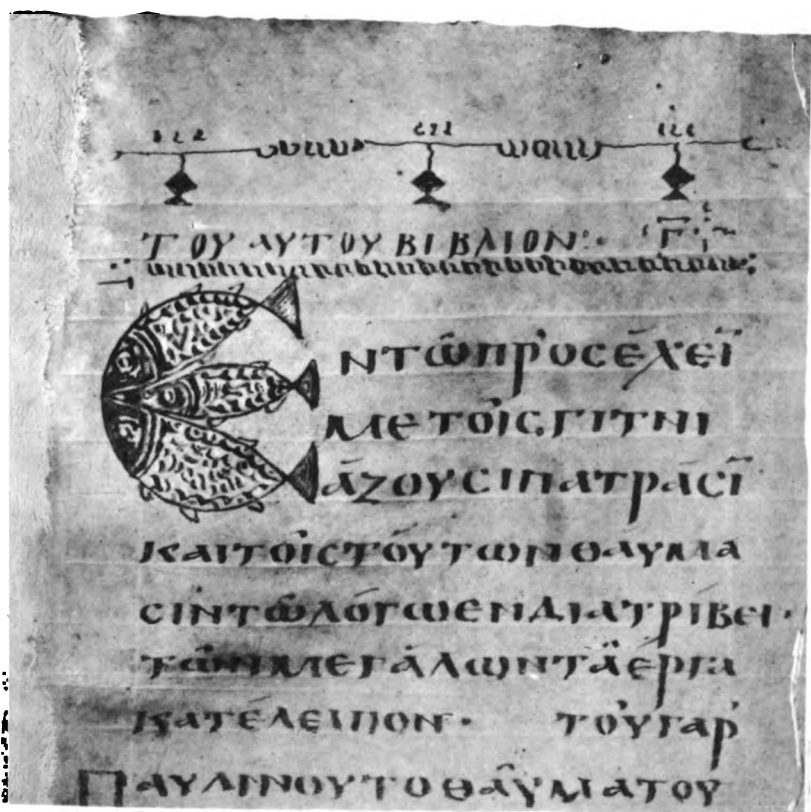 ΤΟΥ ΑΥΤΟΥ ΒΙΒΛΙΟΝ: Γ
ΕΝΤΩΠΡΟСΕΧΕΙ̅
ΜΕΤΟΙСΓΙΤΝΙ
ΑΖΟΥСΙΠΑΤΡΑСΙ̅
ΚΑΙΤΟΙСΤΟΥΤΩΝΘΑΥΜΑ
СΙΝΤΩΛΟΓΩΕΝΔΙΑΤΡΙΒΕΙ·
ΤΩΝΜΕΓΑΛΩΝΤΑΕΡΓΑ
ΚΑΤΕΛΕΙΠΟΝ· ΤΟΥΓΑΡ
ΠΑΥΛΙΝΟΥΤΟΘΑΥΜΑΤΟΥ